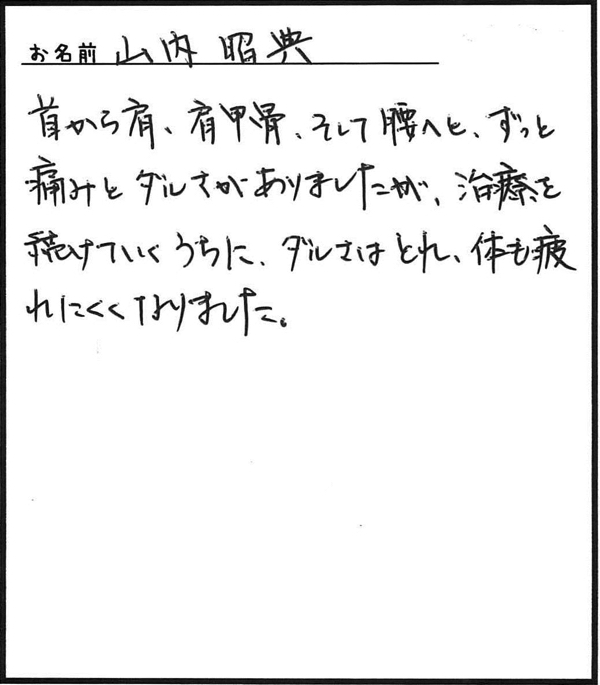 お名前 山内 昭典
首から肩、肩甲骨、そして腰へと、ずっと
痛みとダルさがありましたが、治療を
続けていくうちに、ダルさはとれ、体も疲
れにくくなりました。